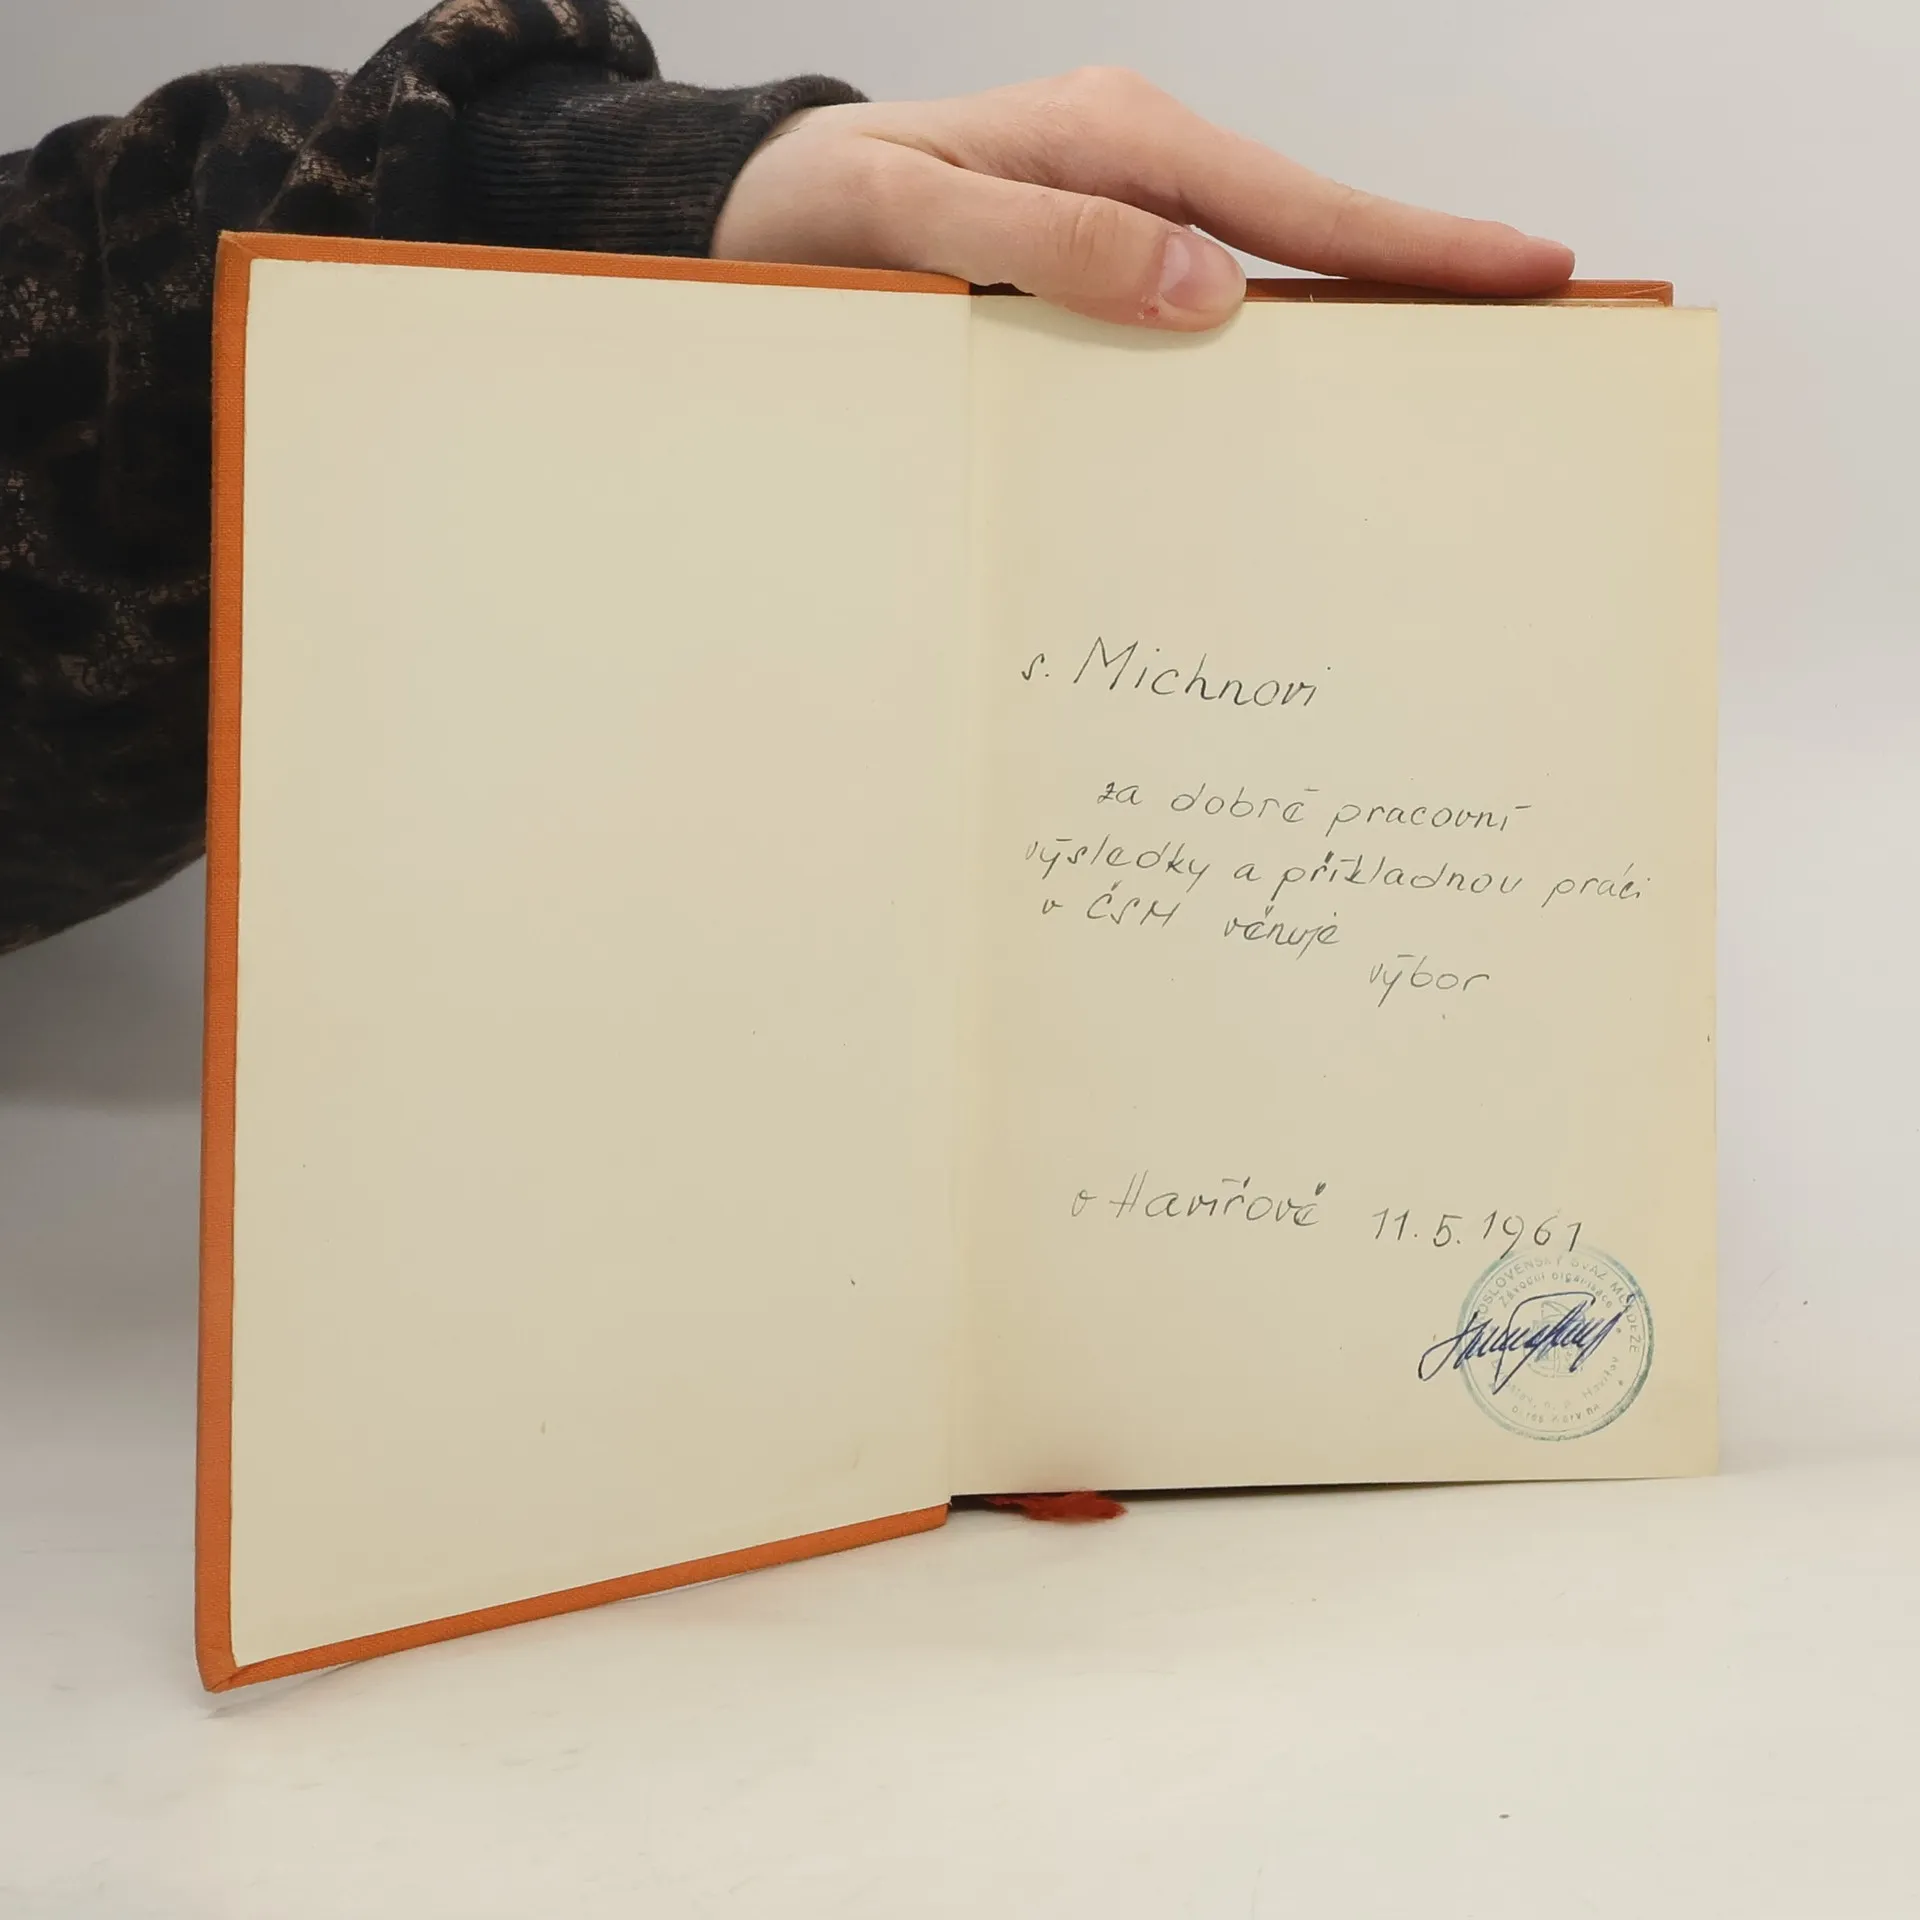 s. Michnovi
za dobré pracovní
výsledky a příkladnou práci
v ČSM věnuje
výbor
v Havířově 11.5.1961
OSLOVENSKÝ SVAZ MLÁDEŽE
Závodní organisace
n. p. Havířov
okres Karviná